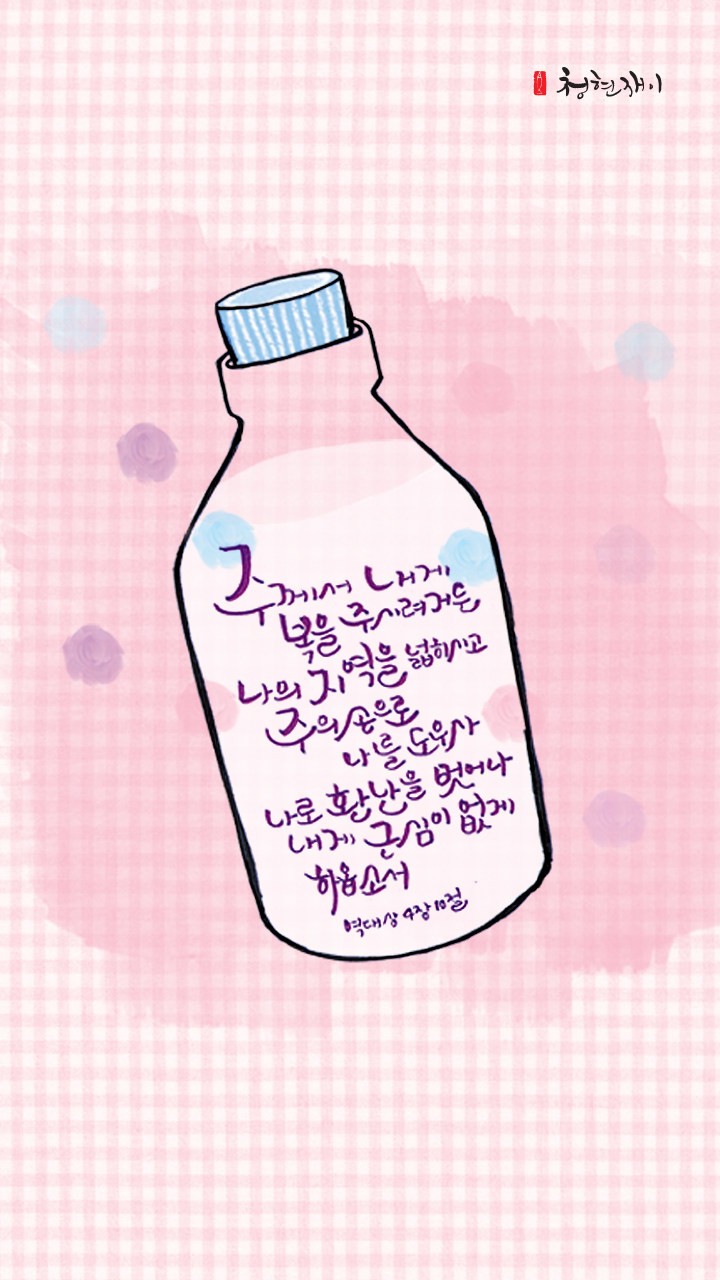 청현재이
주께서 내게
복을 주시려거든
나의 지역을 넓히시고
주의 손으로
나를 도우사
나로 환난을 벗어나
내게 근심이 없게
하옵소서
역대상 4장 10절